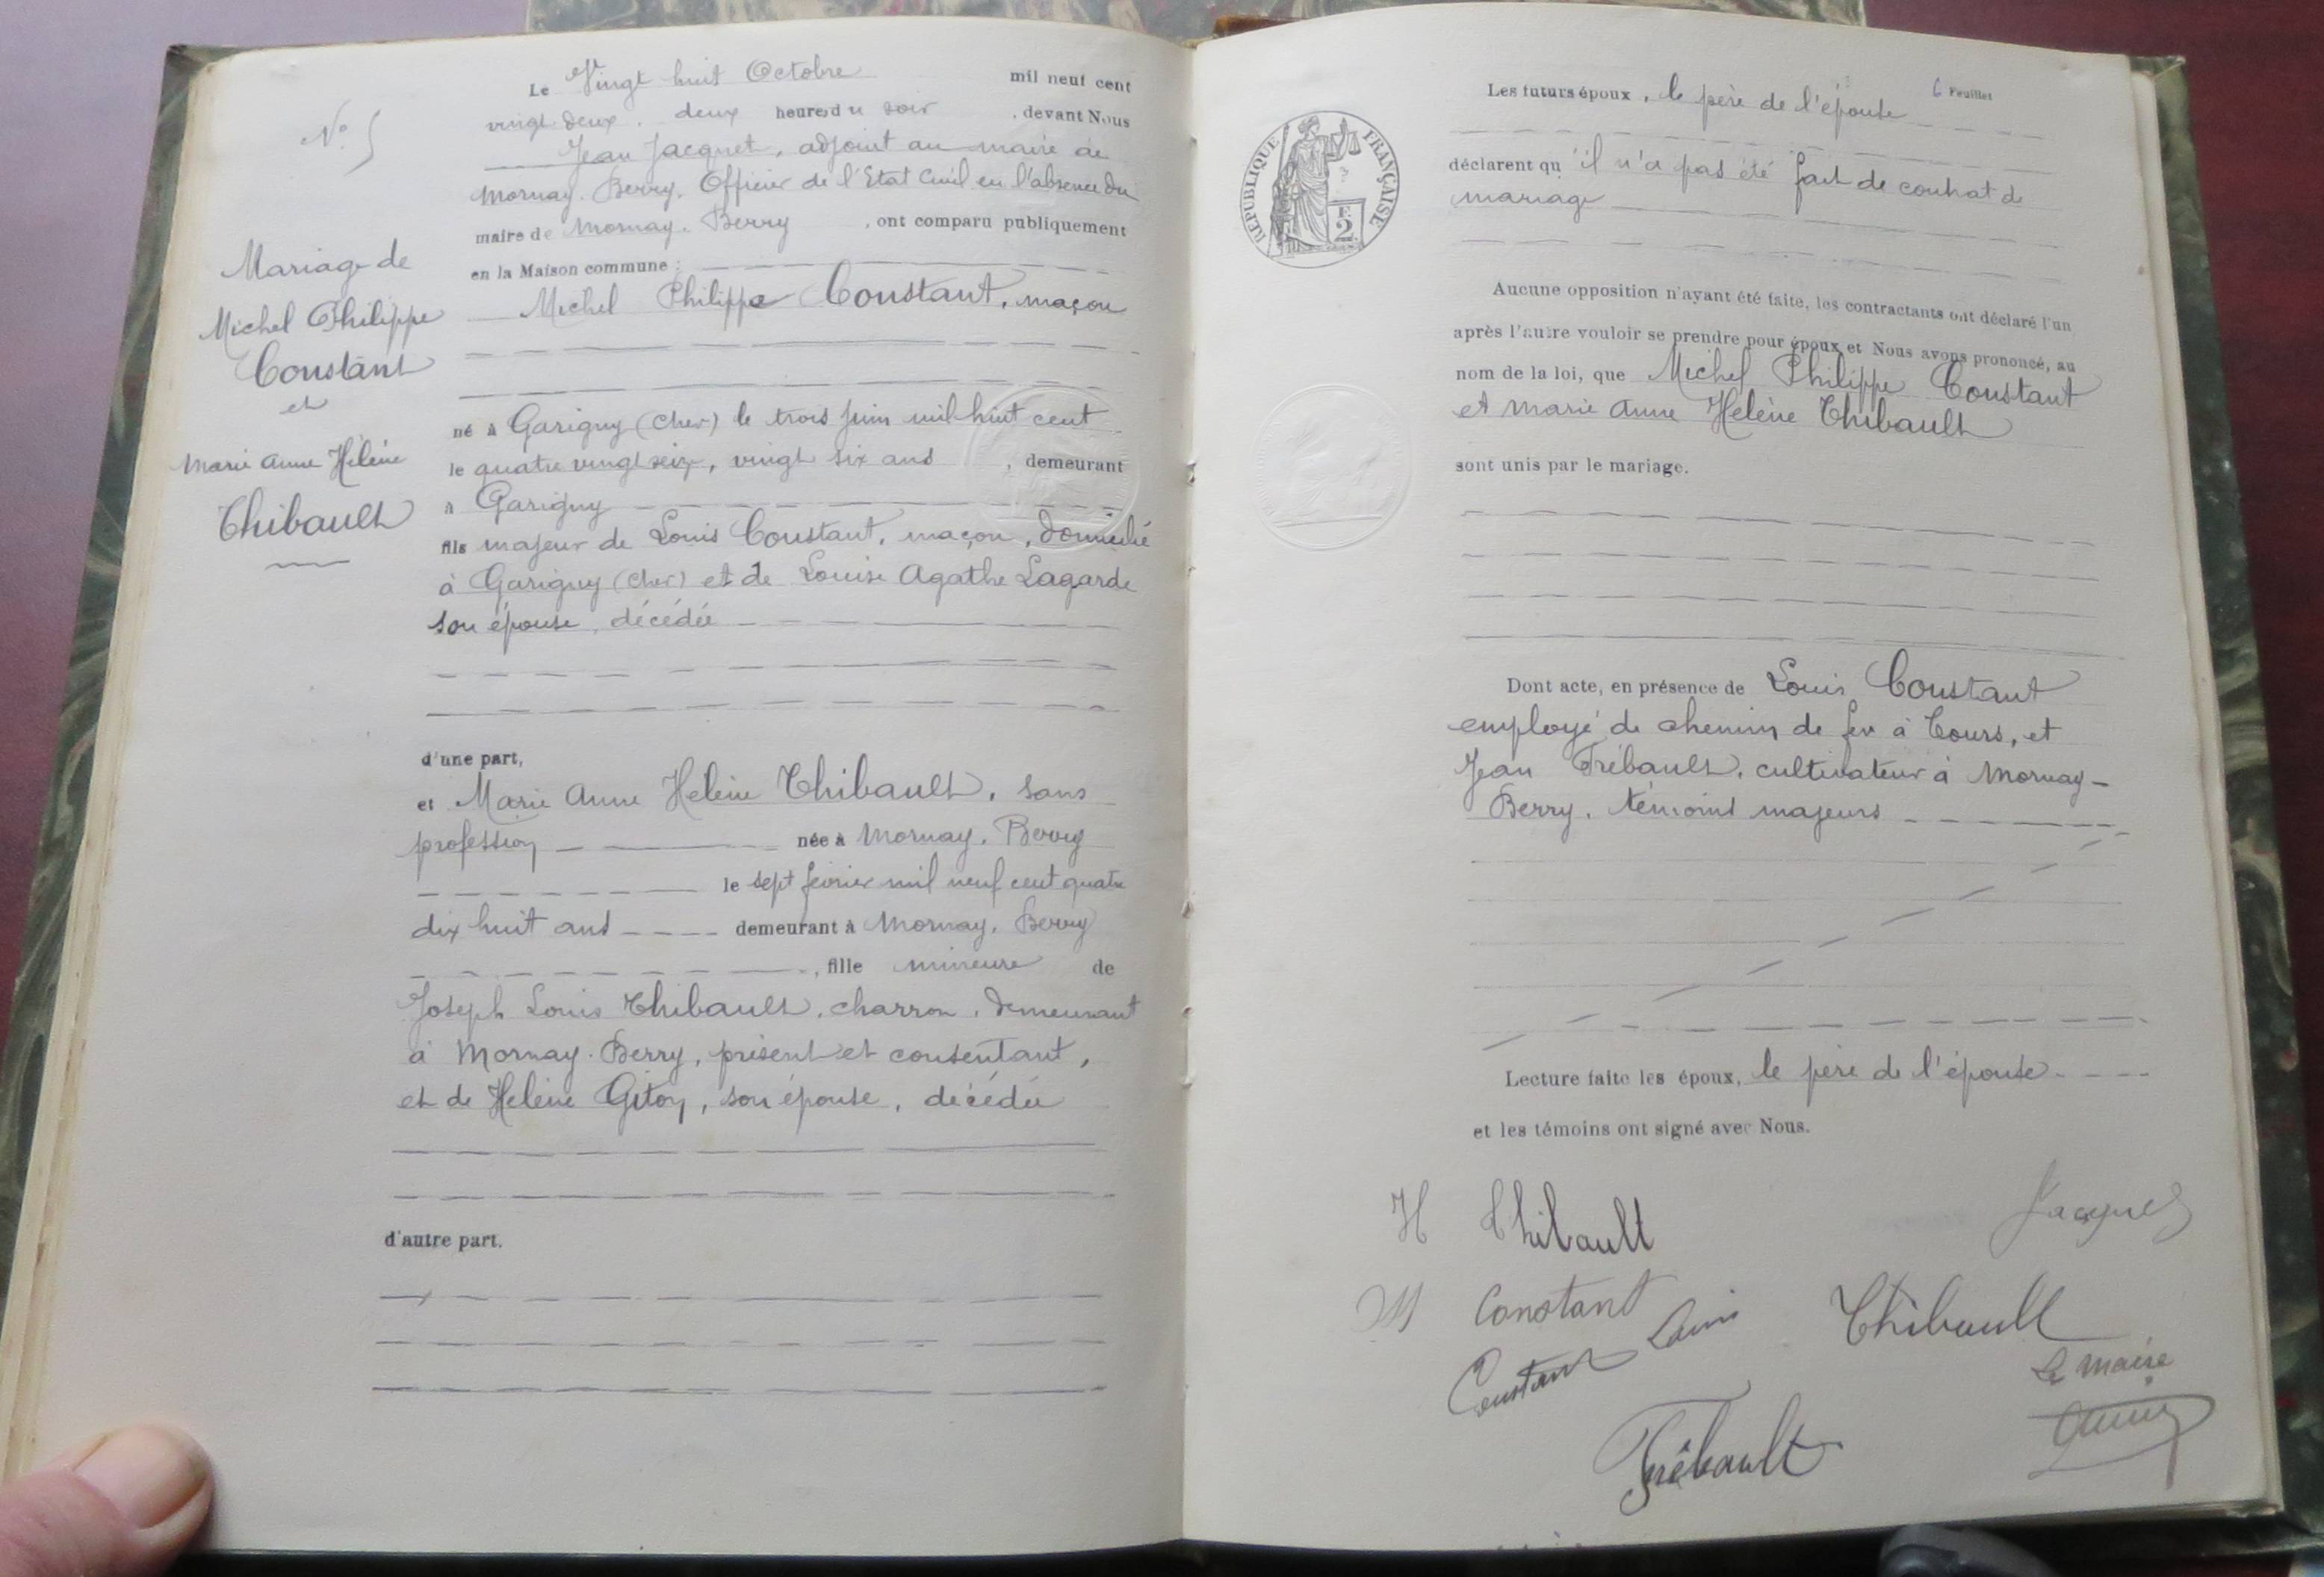 N° 5
Mariage de
Michel Philippe
Constant
et
Marie Anne Hélène
Thibault
Le Vingt huit Octobre mil neuf cent
vingt-deux, deux heures du soir, devant Nous
Jean Jacquet, adjoint au maire de
Mornay-Berry, Officier de l'Etat Civil en l'absence du
maire de Mornay-Berry, ont comparu publiquement
en la Maison commune :
Michel Philippe Constant, maçon
né à Garigny (Cher) le trois juin mil huit cent
le quatre vingt seize, vingt six ans, demeurant
à Garigny
fils majeur de Louis Constant, maçon, domicilié
à Garigny (Cher) et de Louise Agathe Lagarde
son épouse, décédée
d'une part,
et Marie Anne Helène Thibault, sans
profession née à Mornay-Berry
le sept février mil neuf cent quatre
dix huit ans demeurant à Mornay-Berry
, fille mineure de
Joseph Louis Thibault, charron, demeurant
à Mornay-Berry, présent et consentant,
et de Helène Giton, son épouse, décédée
d'autre part.
6 Feuillet
RÉPUBLIQUE FRANÇAISE
2 F
Les futurs époux, le père de l'épouse
déclarent qu'il n'a pas été fait de contrat de
mariage
Aucune opposition n'ayant été faite, les contractants ont déclaré l'un
après l'autre vouloir se prendre pour époux et Nous avons prononcé, au
nom de la loi, que Michel Philippe Constant
et Marie Anne Helène Thibault
sont unis par le mariage.
Dont acte, en présence de Louis Constant
employé de chemin de fer à Tours, et
Jean Trébault, cultivateur à Mornay-
Berry, témoins majeurs
Lecture faite les époux, le père de l'épouse
et les témoins ont signé avec Nous.
H Thibault
Jacquet
M Constant
Constant Louis
Thibault
Le Maire
Trébault